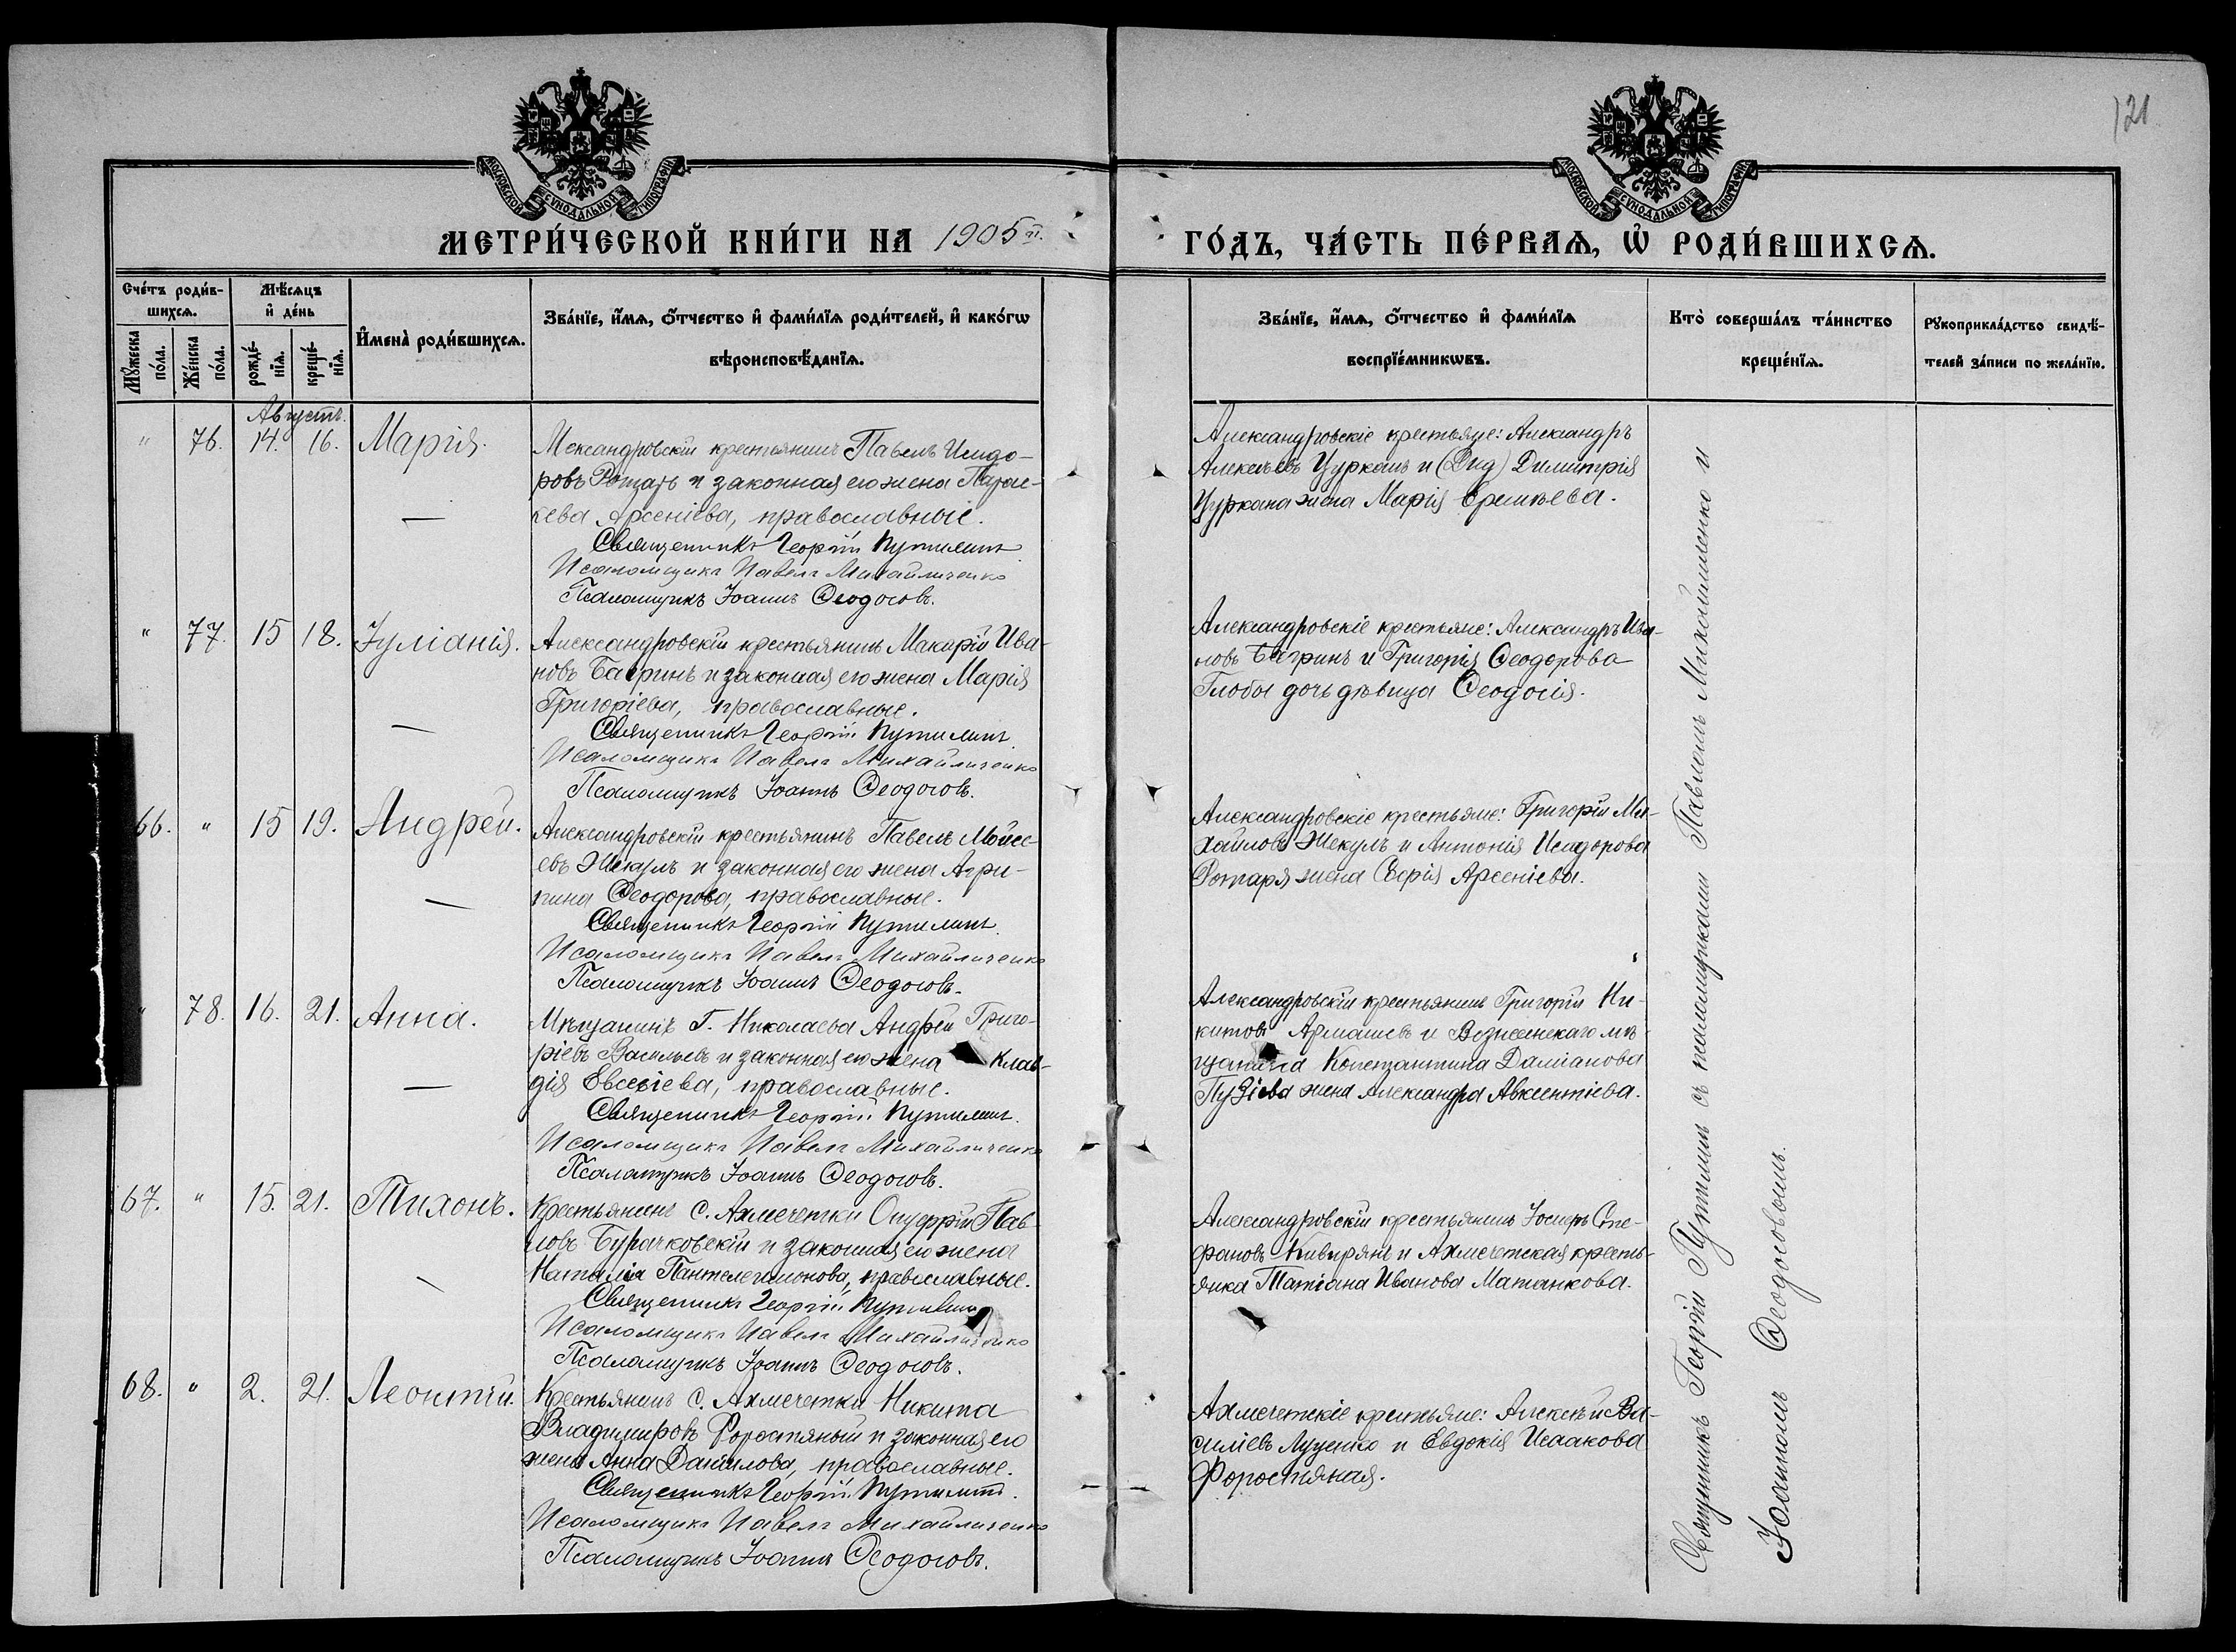 121
МОСКОВСКОЙ СѴНОДАЛЬНОЙ ТИПОГРАФІИ
МОСКОВСКОЙ СѴНОДАЛЬНОЙ ТИПОГРАФІИ
МЕТРИ́ЧЕСКОЙ КНИ́ГИ НА 1905 г.
ГО́ДЪ, ЧА́СТЬ ПЕ́РВАѦ, Ѡ҆ РОДИ́ВШИХСѦ.
Сче́тъ роди́в-
шихсѧ.
Мꙋ́жеска по́ла.
Же́нска по́ла.
Мѣ́сѧцъ
и҆ де́нь
рожде́-
нїѧ.
креще́-
нїѧ.
И҆мена̀ роди́вшихсѧ.
Зва́нїе, и҆́мѧ, ѻ҆́тчество и҆ фами́лїѧ роди́телей, и҆ како́гѡ
вѣроисповѣ́данїѧ.
Зва́нїе, и҆́мѧ, ѻ҆́тчество и҆ фами́лїѧ
воспрїе́мникѡвъ.
Кто̀ соверша́лъ та́инство
креще́нїѧ.
Рꙋкоприкла́дство свидѣ́-
телей за́писи по жела́нїю.
Августъ.
" 76. 14. 16. Марія.
Александровскій крестьянинъ Павелъ Исидо-
ровъ Ротарь и законная его жена Парас-
кева Арсеніева, православные.
Священникъ Георгій Путилинъ
Псаломщикъ Павелъ Михайличенко
Псаломщикъ Іоаннъ Ѳеодосовъ.
Александровскіе крестьяне: Александръ
Алексѣевъ Цурканъ и Димитрія
Цуркана жена Марія Еремѣева.
" 77. 15 18. Іуліанія.
Александровскій крестьянинъ Макарій Ива-
новъ Багринъ и законная его жена Марія
Григоріева, православные.
Священникъ Георгій Путилинъ.
Псаломщикъ Павелъ Михайличенко
Псаломщикъ Іоаннъ Ѳеодосовъ.
Александровскіе крестьяне: Александръ Ива-
новъ Багринъ и Григорія Ѳеодорова
Глобы дочь дѣвица Ѳеодосія.
66. " 15 19. Андрей.
Александровскій крестьянинъ Павелъ Мойсе-
евъ Жекулъ и законная его жена Агри-
пина Ѳеодорова, православные.
Священникъ Георгій Путилинъ.
Псаломщикъ Павелъ Михайличенко
Псаломщикъ Іоаннъ Ѳеодосовъ.
Александровскіе крестьяне: Григорій Ми-
хайловъ Жекулъ и Антонія Исидорова
Ротаря жена Арсеніева.
" 78. 16. 21. Анна.
Мѣщанинъ Г. Николаева Андрей Григо-
ріевъ Васильевъ и законная его жена Клав-
дія Евсевіева, православные.
Священникъ Георгій Путилинъ.
Псаломщикъ Павелъ Михайличенко
Псаломщикъ Іоаннъ Ѳеодосовъ.
Александровскій крестьянинъ Григорій Ни-
китовъ Армашевъ и Вознесенскаго мѣ-
щанина Константина Даміанова
Пузіева жена Александра Авксентіева.
67. " 15. 21. Тихонъ.
Крестьянинъ с. Ахмечетки Онуфрій Пав-
ловъ Бурачковскій и законная его жена
Наталія Пантелеимонова, православные.
Священникъ Георгій Путилинъ
Псаломщикъ Павелъ Михайличенко
Псаломщикъ Іоаннъ Ѳеодосовъ.
Александровскій крестьянинъ Іосифъ Сте-
фановъ Кивирянъ и Ахмечетская кресть-
янка Татіана Иванова Матанкова.
68. " 2. 21. Леонтій.
Крестьянинъ с. Ахмечетки Никита
Владимировъ Форостяный и законная его
жена Анна Данилова, православные.
Священникъ Георгій Путилинъ.
Псаломщикъ Павелъ Михайличенко
Псаломщикъ Іоаннъ Ѳеодосовъ.
Ахмечетскіе крестьяне: Алексѣй Ва-
силіевъ Луценко и Евдокія Исаакова
Форостяная.
Священникъ Георгій Путилинъ съ псаломщиками Павломъ Михайличенко и
Іоанномъ Ѳеодосовымъ.